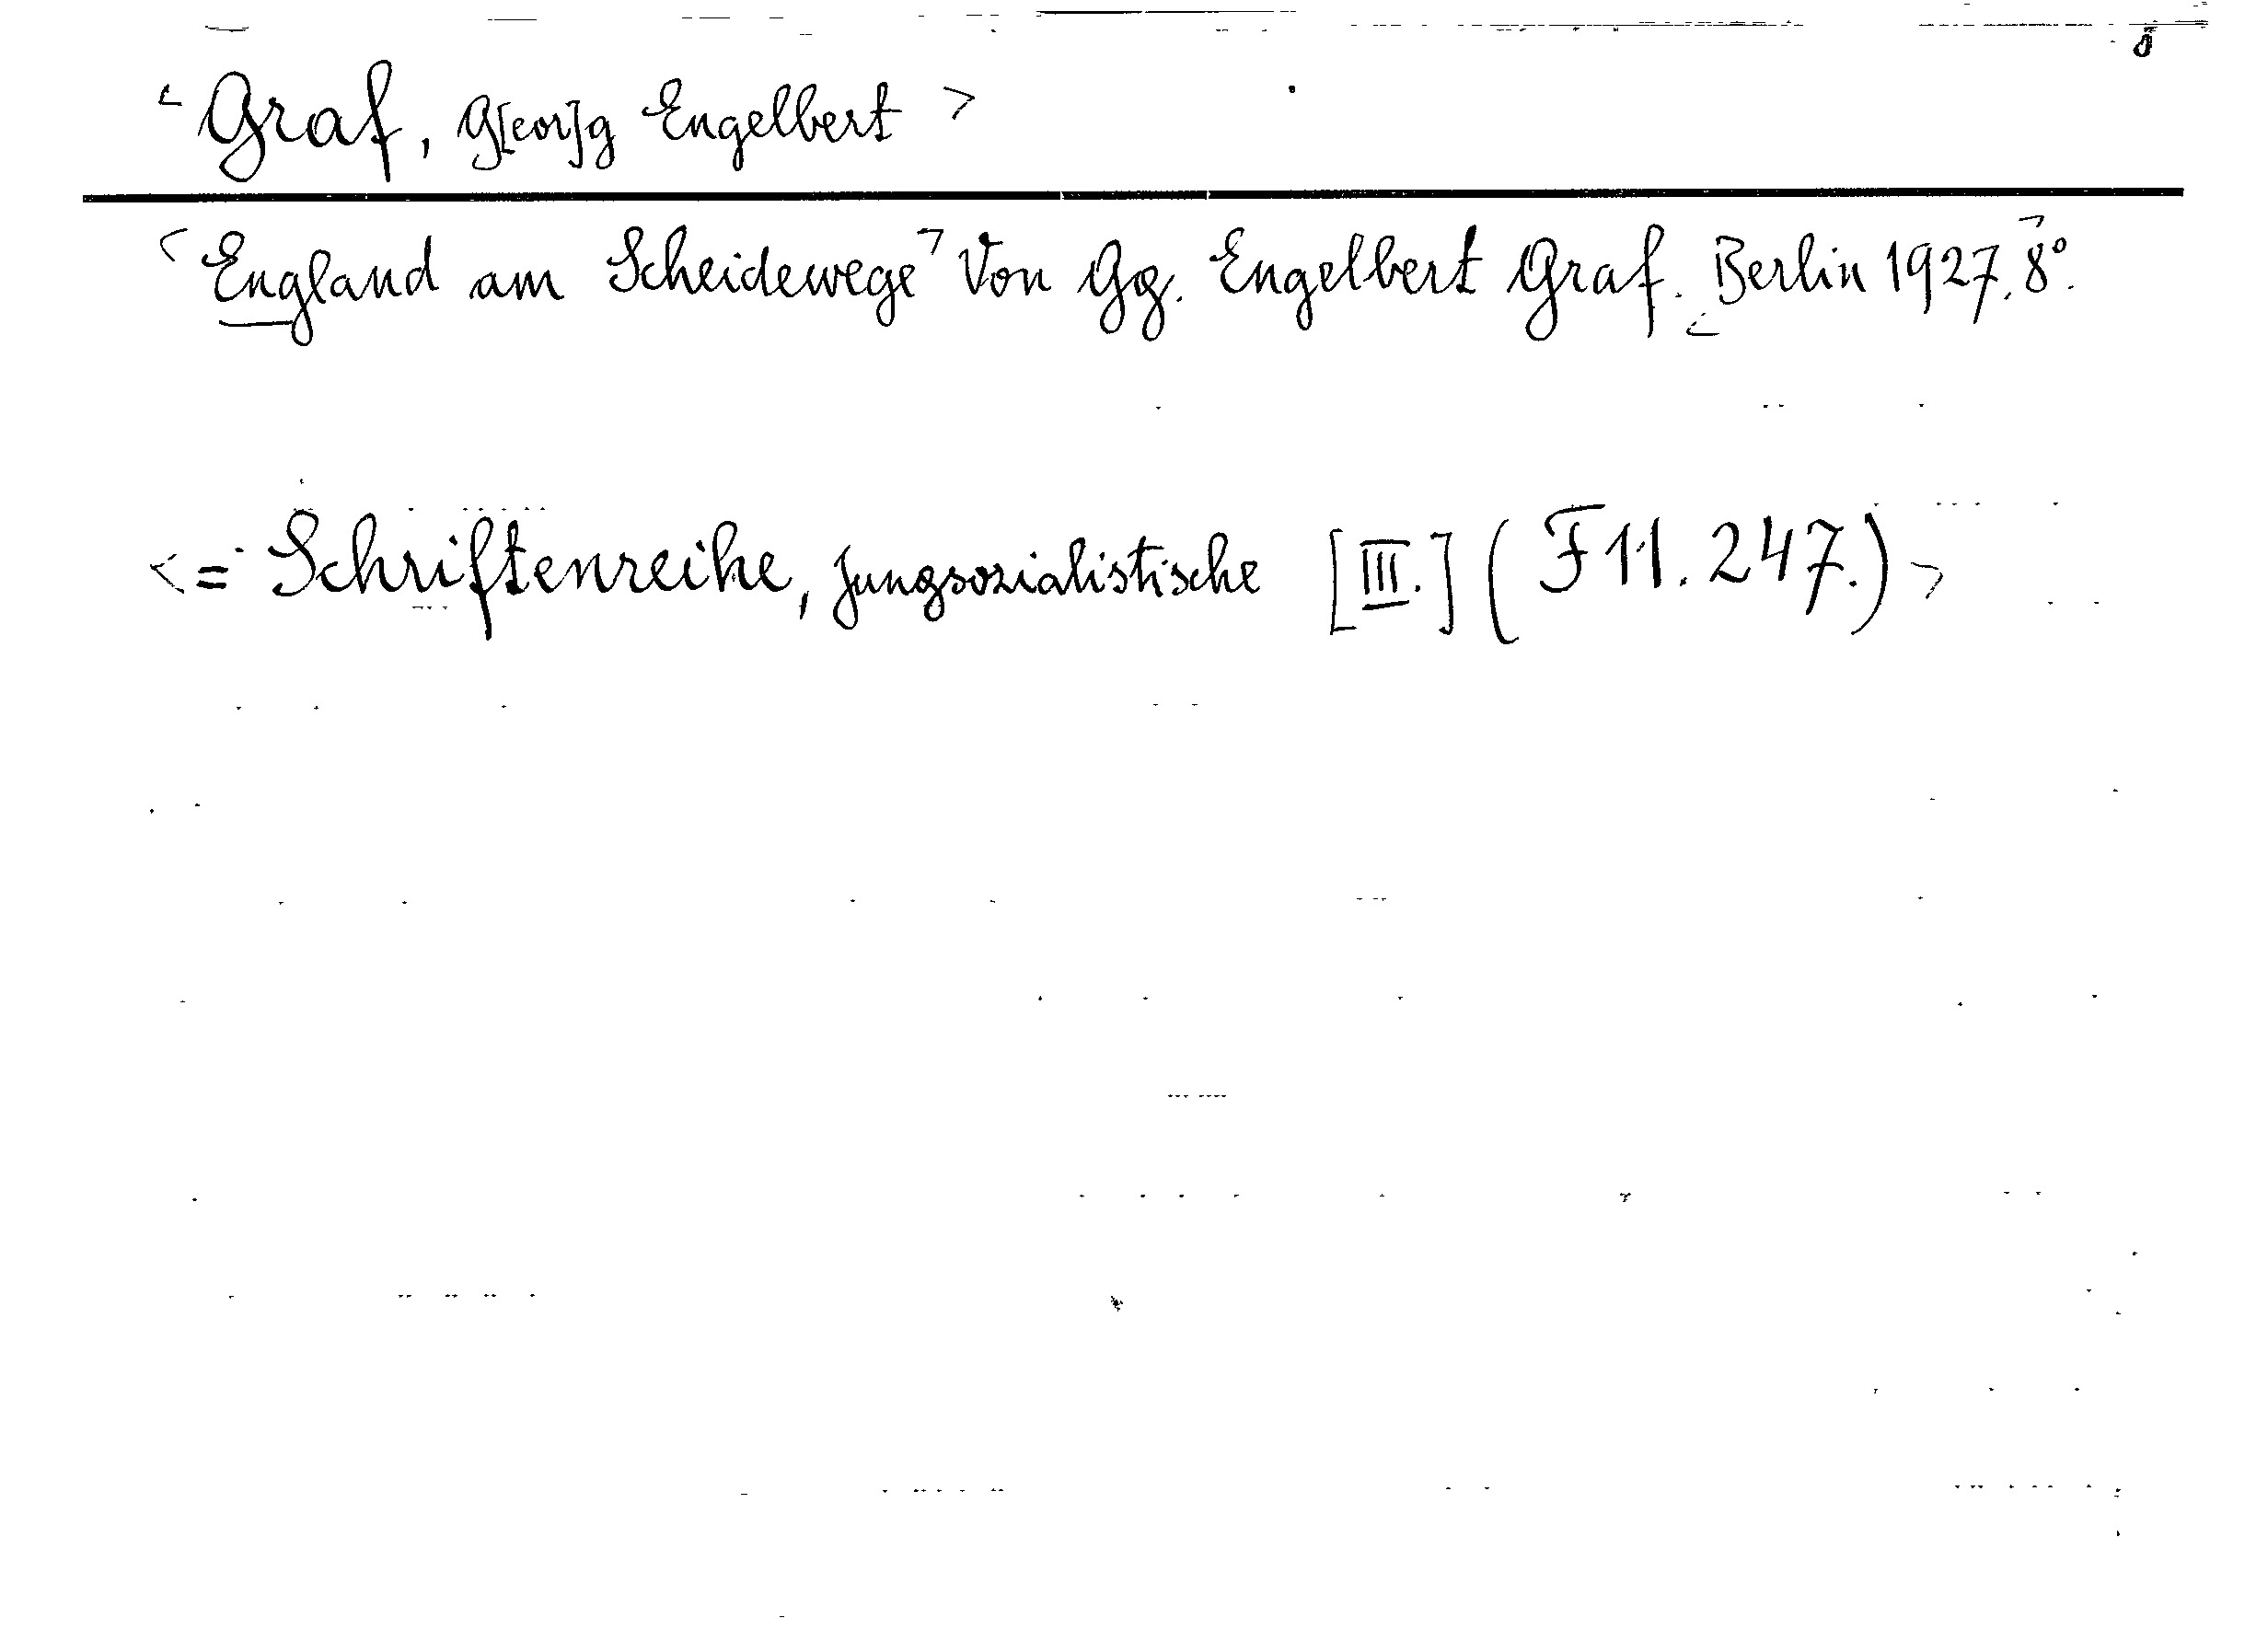 < Graf, G[eor]g Engelbert >
< England am Scheidewege > Von Gg. Engelbert Graf. < Berlin 1927. 8°. >
< = Schriftenreihe, jungsozialistische [III.] (F 11. 247.) >